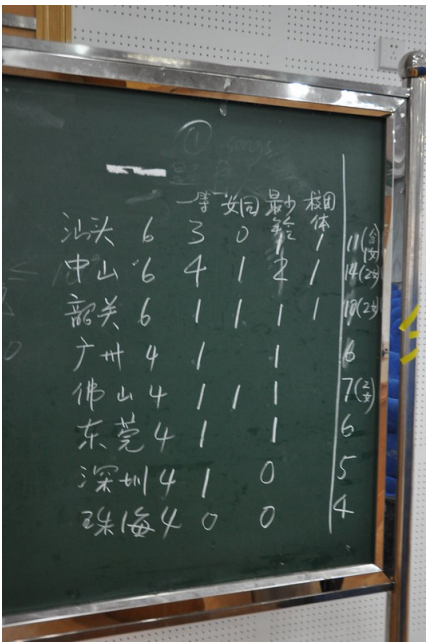 ① songs
一等 女同 最少龄 校团体
汕头 6 3 0 1 1 11(含1女)
中山 6 4 1 2 1 14(2女)
韶关 6 1 1 1 1 10(2女)
广州 4 1 1 6
佛山 4 1 1 1 7(2女)
东莞 4 1 1 6
深圳 4 1 0 5
珠海 4 0 0 4